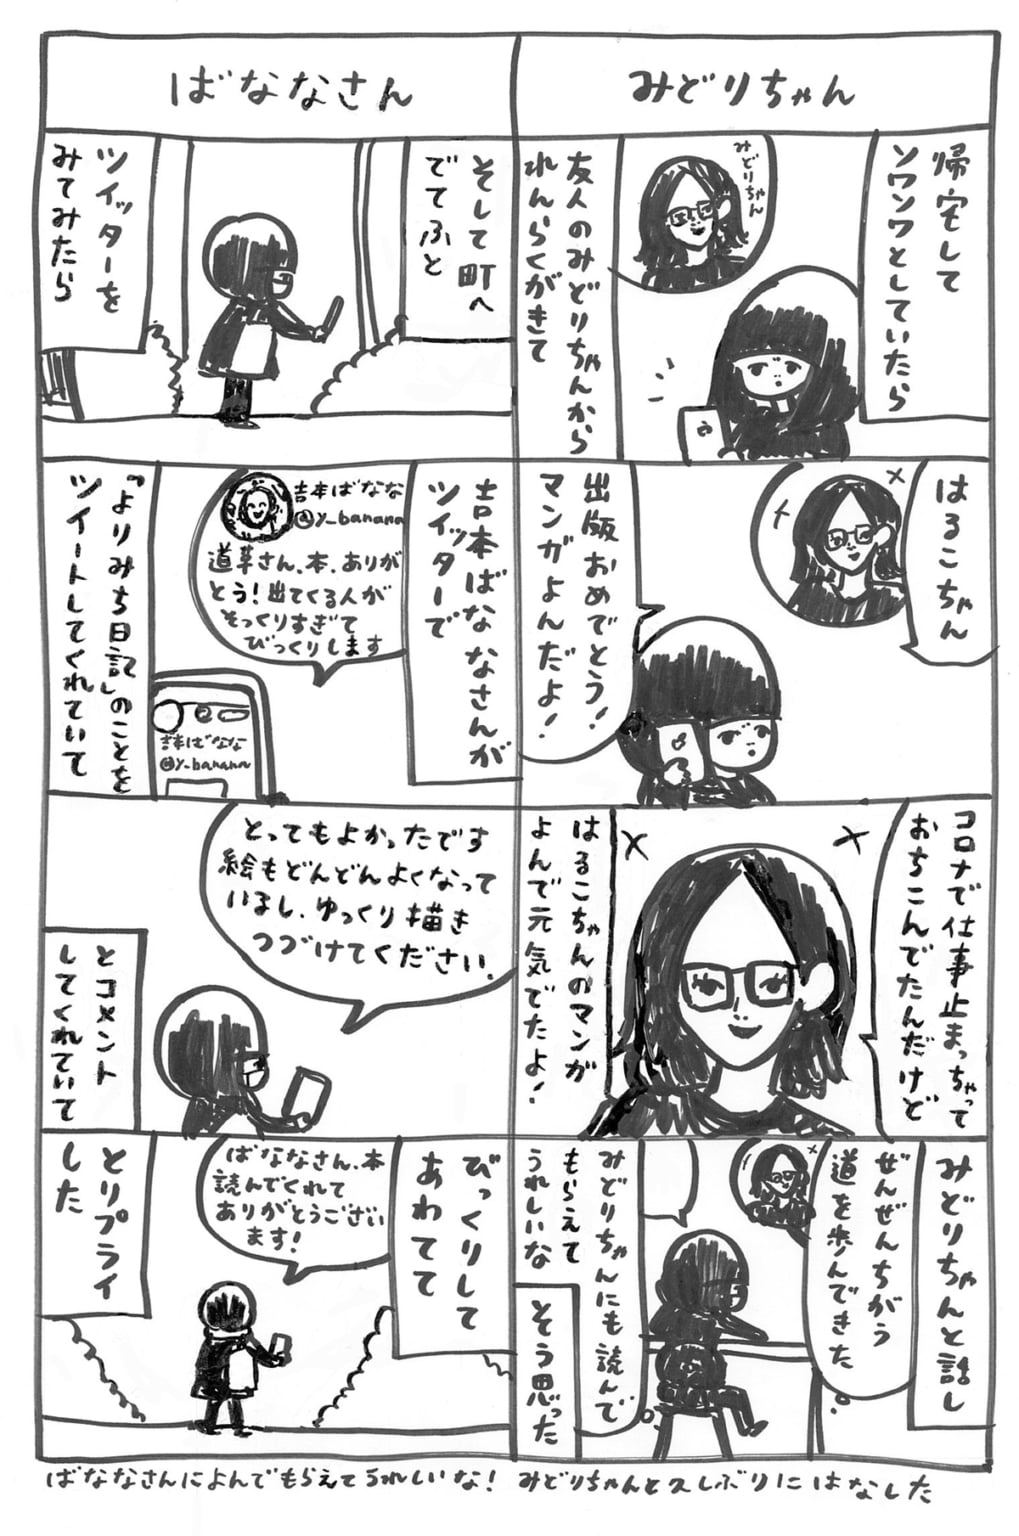 みどりちゃん
帰宅して
ソワソワとしていたら
みどりちゃん
友人のみどりちゃんから
れんらくがきて
はるこちゃん
出版おめでとう!
マンガよんだよ!
コロナで仕事止まっちゃって
おちこんでたんだけど
はるこちゃんのマンガ
よんで元気でたよ!
みどりちゃんと話し
ぜんぜんちがう
道を歩んできた
みどりちゃんにも読んで
もらえて
うれしいな
そう思った
みどりちゃんと久しぶりにはなした
ばななさん
そして町へ
でてふと
ツイッターを
みてみたら
吉本ばななさんが
ツイッターで
吉本ばなな
@y_banana
道草さん、本、ありが
とう!出てくる人が
そっくりすぎて
びっくりします
吉本ばなな
@y_banana
「よりみち日記」のことを
ツイートしてくれていて
とってもよかったです
絵もどんどんよくなって
いるし、ゆっくり描き
つづけてください.
とコメント
してくれていて
びっくりして
あわてて
ばななさん、本
読んでくれて
ありがとうござい
ます!
とリプライ
した
ばななさんによんでもらえてうれしいな!